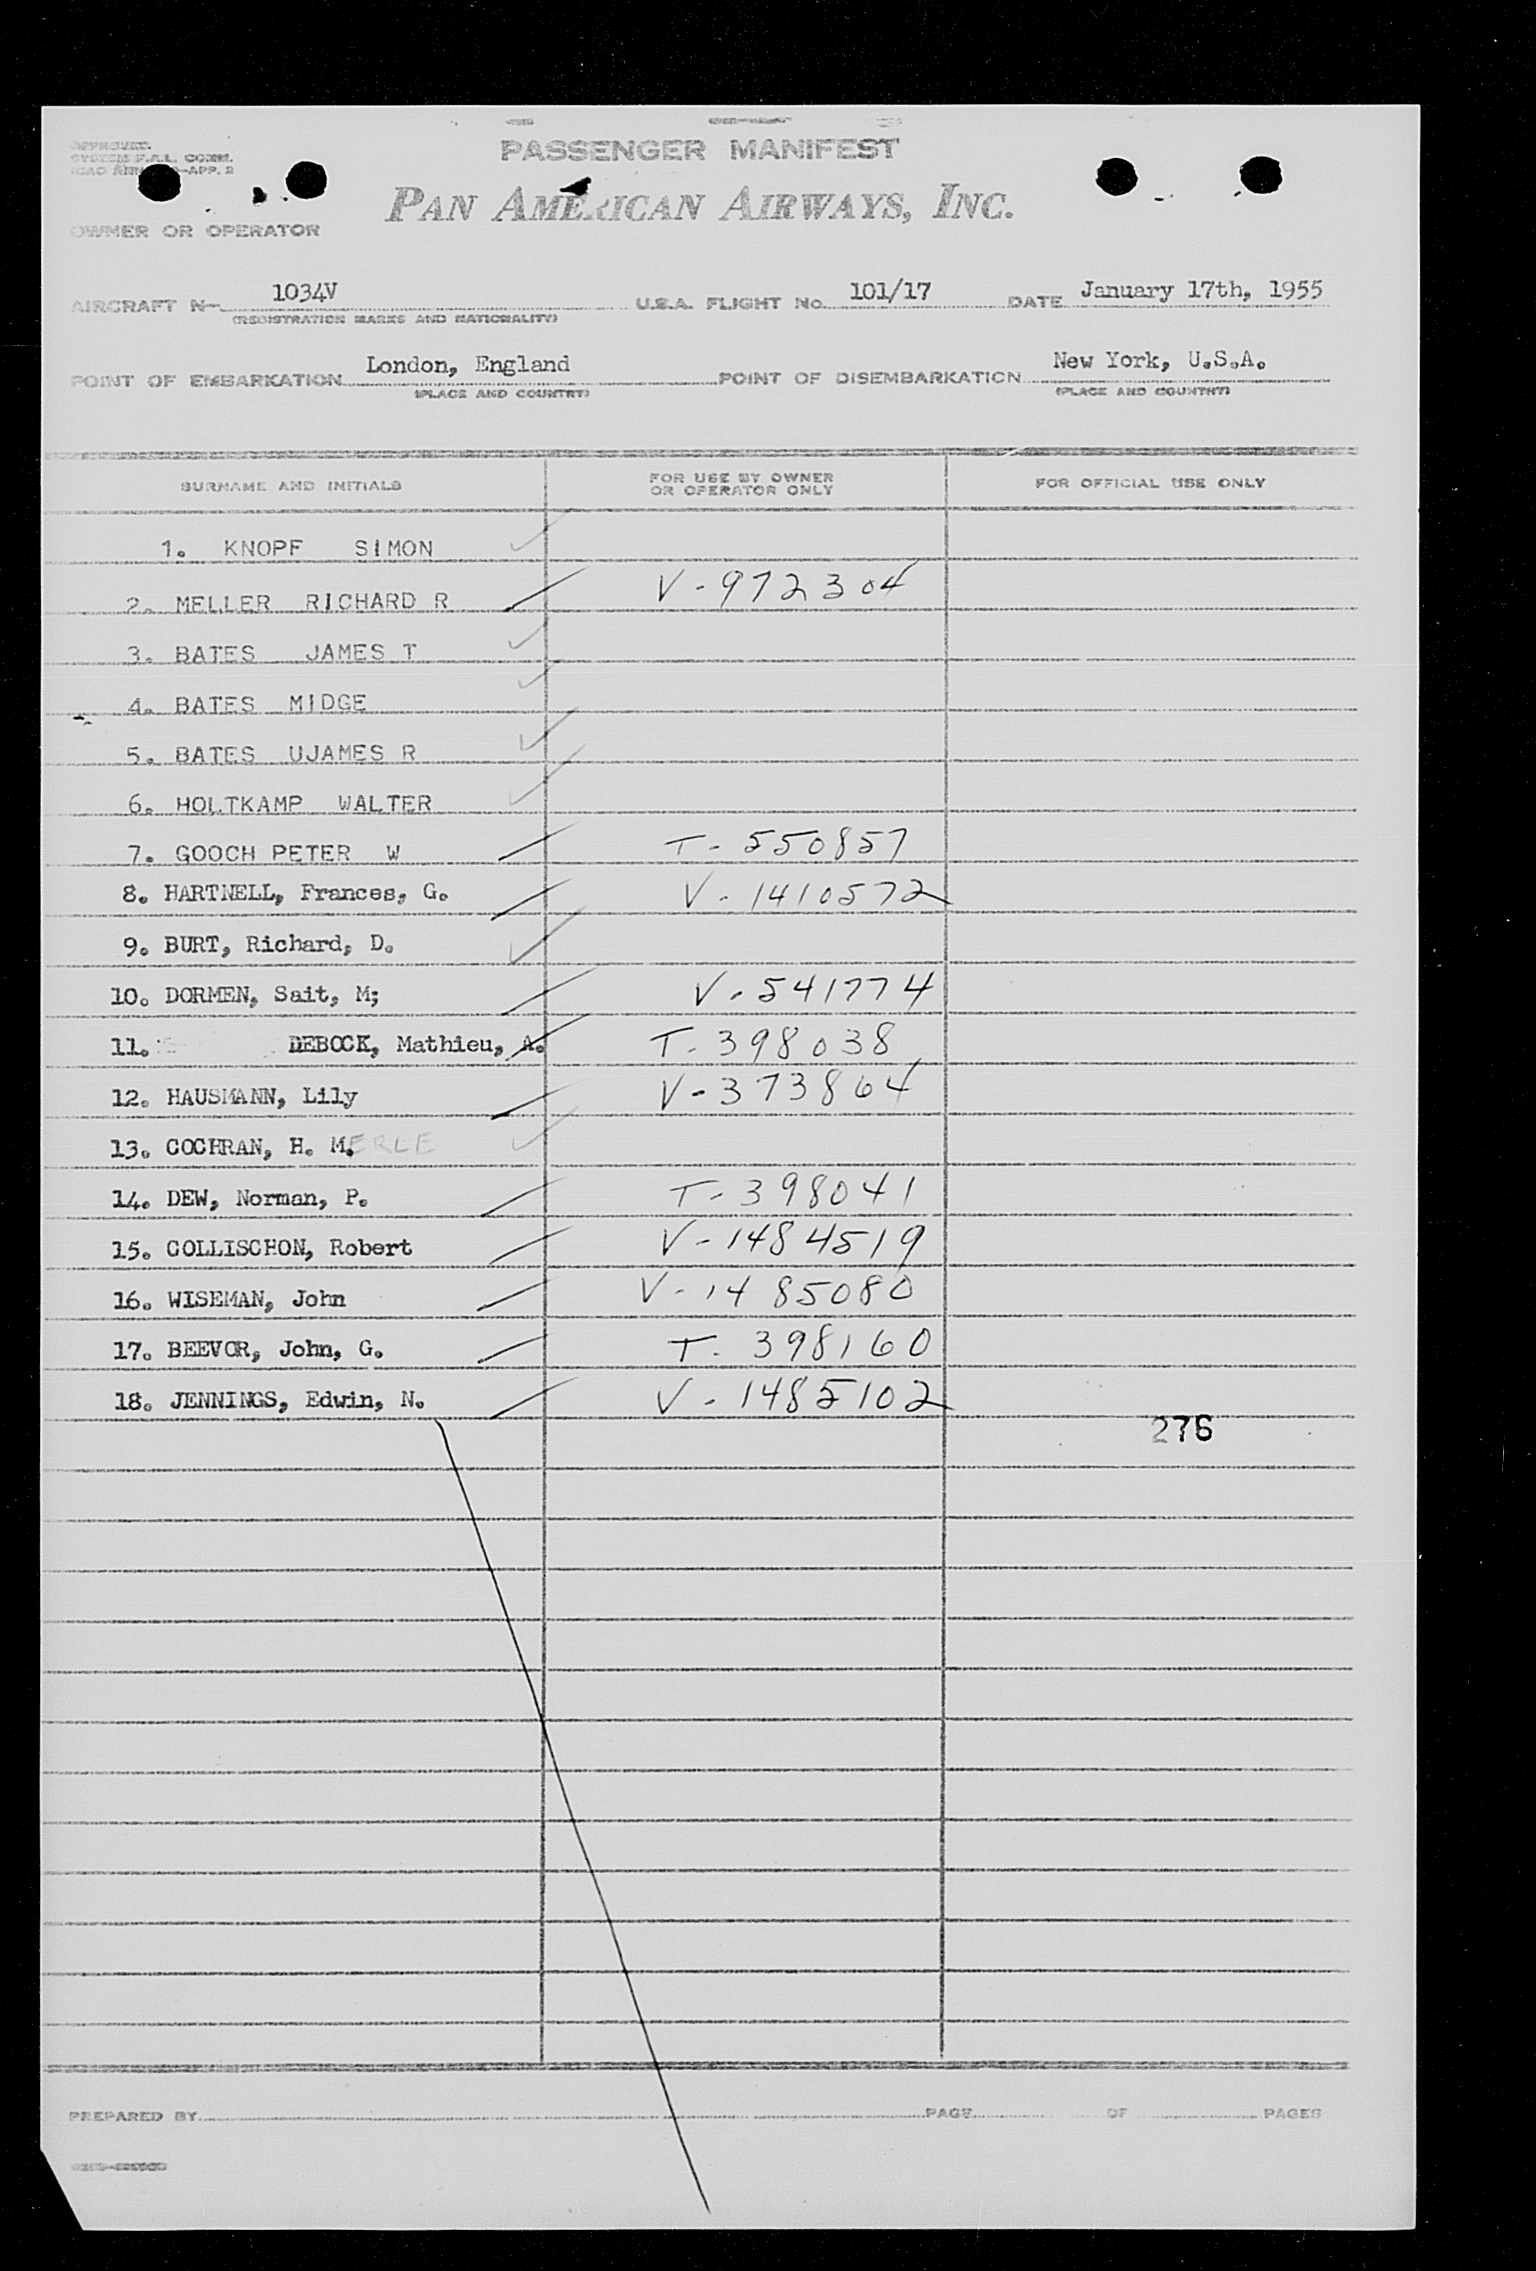 APPROVED.
SYSTEM F.A.L. COMM.
ICAO ANN 9—APP. 2
PASSENGER MANIFEST
PAN AMERICAN AIRWAYS, INC.
OWNER OR OPERATOR
AIRCRAFT N— 1034V U.S.A. FLIGHT No. 101/17 DATE January 17th, 1955
(REGISTRATION MARKS AND NATIONALITY)
POINT OF EMBARKATION London, England POINT OF DISEMBARKATION New York, U.S.A.
(PLACE AND COUNTRY) (PLACE AND COUNTRY)
SURNAME AND INITIALS FOR USE BY OWNER OR OPERATOR ONLY FOR OFFICIAL USE ONLY
1. KNOPF SIMON
2. MELLER RICHARD R V-972304
3. BATES JAMES T
4. BATES MIDGE
5. BATES UJAMES R
6. HOLTKAMP WALTER
7. GOOCH PETER W T-550857
8. HARTNELL, Frances, G. V-1410572
9. BURT, Richard, D.
10. DORMEN, Sait, M; V-541774
11. DEBOCK, Mathieu, A. T-398038
12. HAUSMANN, Lily V-373864
13. COCHRAN, H. M.ERLE
14. DEW, Norman, P. T-398041
15. COLLISCHON, Robert V-1484519
16. WISEMAN, John V-1485080
17. BEEVOR, John, G. T-398160
18. JENNINGS, Edwin, N. V-1485102
276
PREPARED BY PAGE OF PAGES